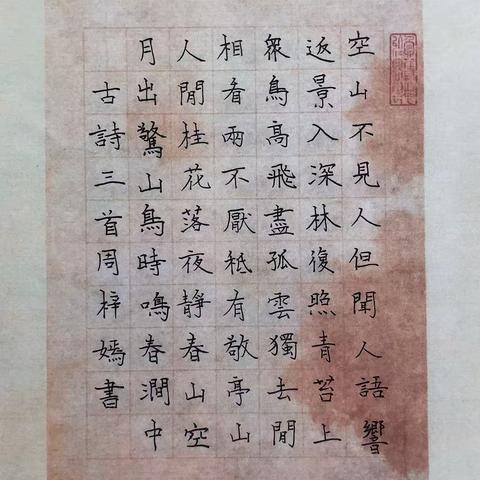 空山不見人但聞人語響
返景入深林復照青苔上
衆鳥高飛盡孤雲獨去閒
相看兩不厭秖有敬亭山
人閒桂花落夜靜春山空
月出驚山鳥時鳴春澗中
古詩三首周梓嫣書